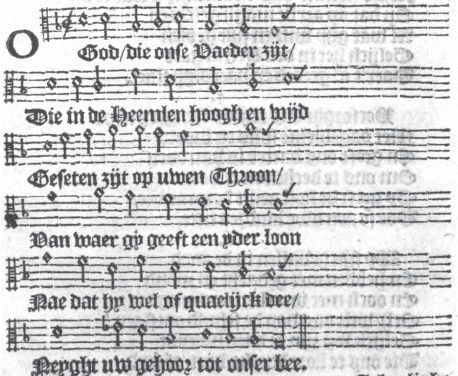 O God/die onse Vaeder zijt/
Die in de Heemlen hoogh en wijd
Geseten zijt op uwen Throon/
Van waer gy geeft een yder loon
Nae dat hy wel of quaelijck dee/
Neyght uw gehoor tot onser bee.